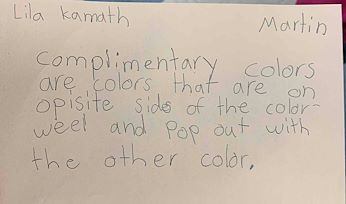 Lila Kamath
Martin
complimentary colors
are colors that are on
opisite side of the color-
weel and pop out with
the other color.